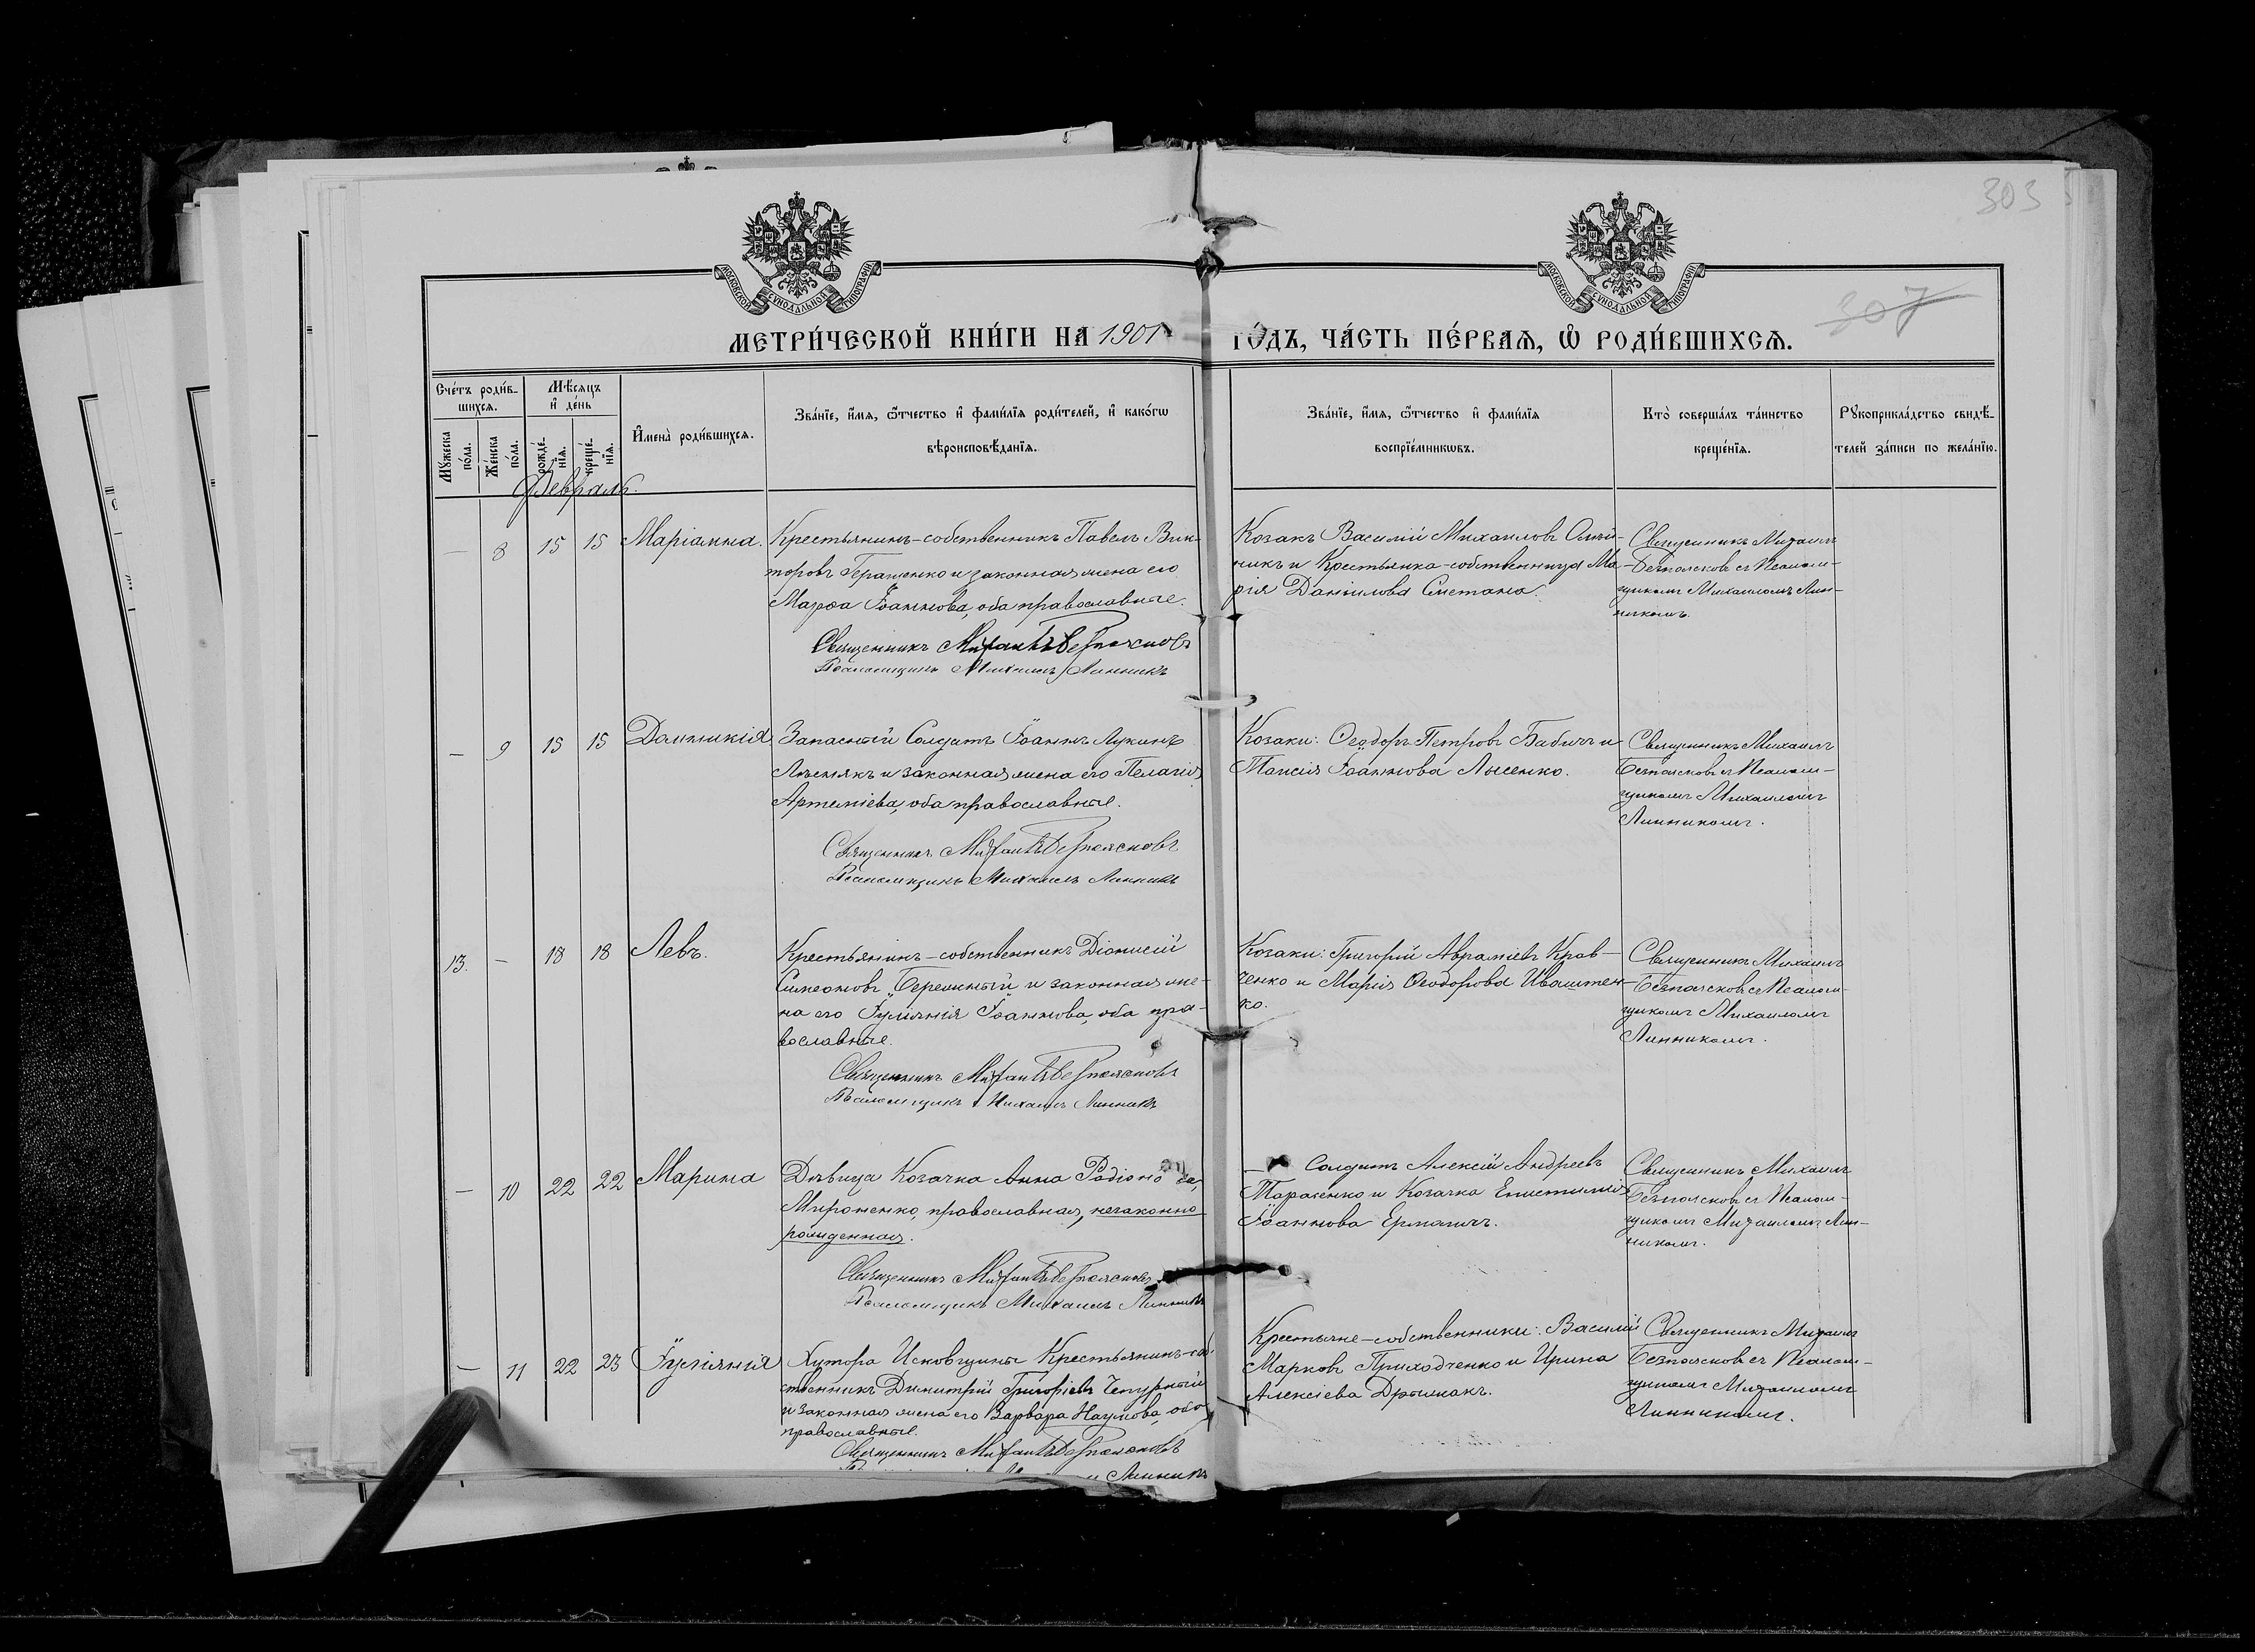 303
307
МОСКОВСКОЙ СѴНОДАЛЬНОЙ ТИПОГРАФІИ
МОСКОВСКОЙ СѴНОДАЛЬНОЙ ТИПОГРАФІИ
МЕТРИ́ЧЕСКОЙ КНИ́ГИ НА 1901 ГО́ДЪ, ЧА́СТЬ ПЕ́РВАѦ, Ѽ РОДИ́ВШИХСѦ.
Сче́тъ роди́в-
шихсѧ.
Мꙋжеска по́ла.
Же́нска по́ла.
Мѣ́сѧцъ и҆ де́нь
рожде́-нїѧ.
креще́-нїѧ.
И҆мена̀ роди́вшихсѧ.
Зва́нїе, и҆́мѧ, ѻ҆́тчество и҆ фами́лїѧ роди́телей, и҆ како́гѡ
вѣроисповѣ́данїѧ.
Зва́нїе, и҆́мѧ, ѻ҆́тчество и҆ фами́лїѧ
воспрїе́мникѡвъ.
Кто̀ соверша́лъ та́инство
креще́нїѧ.
Рꙋкоприкла́дство свидѣ́-
телей за́писи по жела́нїю.
Февраль.
— 8 15 15 Маріамна.
Крестьянинъ-собственникъ Павелъ Вик-
торовъ Геращенко и законная жена его
Марѳа Іоаннова, оба православные.
Священникъ Михаилъ Безпоясковъ
Псаломщикъ Михаилъ Линникъ
Козакъ Василій Михаиловъ Олій-
никъ и Крестьянка-собственница Ма-
рія Даніилова Сметана.
Священникъ Михаилъ
Безпоясковъ съ Псалом-
щикомъ Михаиломъ Лин-
никомъ.
— 9 15 15 Домникія
Запасный Солдатъ Іоаннъ Лукинъ
и законная жена его Пелагія
Артеміева, оба православные.
Священникъ Михаилъ Безпоясковъ
Псаломщикъ Михаилъ Линникъ
Козаки: Ѳеодоръ Петровъ Бабичъ и
Таисія Іоаннова Лысенко.
Священникъ Михаилъ
Безпоясковъ съ Псалом-
щикомъ Михаиломъ
Линникомъ.
13. — 18 18 Левъ.
Крестьянинъ-собственникъ Діонисій
Симеоновъ Бережный и законная же-
на его Іуліанія Іоаннова, оба пра-
вославные.
Священникъ Михаилъ Безпоясковъ
Псаломщикъ Михаилъ Линникъ
Козаки: Григорій Авраміевъ Крав-
ченко и Марія Ѳеодорова Иващен-
ко.
Священникъ Михаилъ
Безпоясковъ съ Псалом-
щикомъ Михаиломъ
Линникомъ.
— 10 22 22 Марина
Дѣвица Козачка Анна Родіонова
Мироненко, православная, незаконно
рожденная.
Священникъ Михаилъ Безпоясковъ
Псаломщикъ Михаилъ Линникъ
Солдатъ Алексій Андреевъ
Тарасенко и Козачка Епистимія
Іоаннова Ермакъ.
Священникъ Михаилъ
Безпоясковъ съ Псалом-
щикомъ Михаиломъ Лин-
никомъ.
— 11 22 23 Іуліанія
Хутора Исковщины Крестьянинъ-соб-
ственникъ Димитрій Григоріевъ Чепурный
и законная жена его Варвара Наумова, оба
православные.
Священникъ Михаилъ Безпоясковъ
Линникъ
Крестьяне-собственники: Василій
Марковъ Приходченко и Ирина
Алексіева
Священникъ Михаилъ
Безпоясковъ съ Псалом-
щикомъ Михаиломъ
Линникомъ.